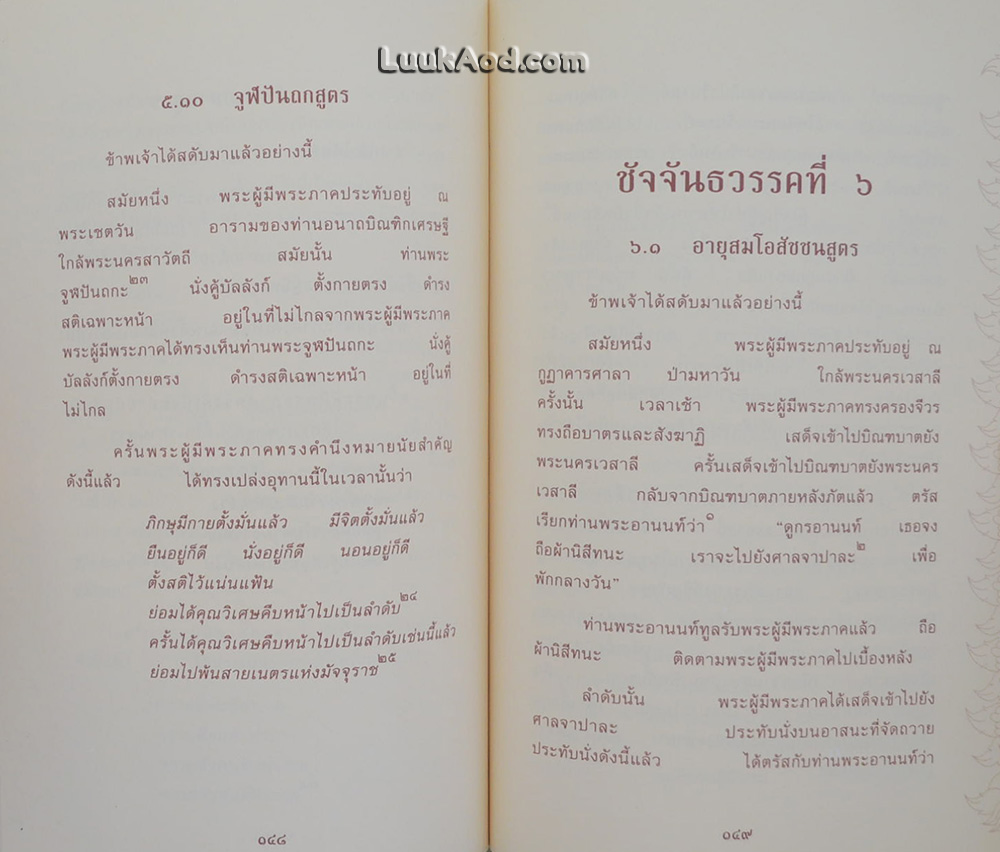 LuukAod.com
๕.๑๐ จูฬปันถกสูตร
ข้าพเจ้าได้สดับมาแล้วอย่างนี้
สมัยหนึ่ง พระผู้มีพระภาคประทับอยู่ ณ
พระเชตวัน อารามของท่านอนาถบิณฑิกเศรษฐี
ใกล้พระนครสาวัตถี สมัยนั้น ท่านพระ
จูฬปันถกะ๒๓ นั่งคู้บัลลังก์ ตั้งกายตรง ดำรง
สติเฉพาะหน้า อยู่ในที่ไม่ไกลจากพระผู้มีพระภาค
พระผู้มีพระภาคได้ทรงเห็นท่านพระจูฬปันถกะ นั่งคู้
บัลลังก์ตั้งกายตรง ดำรงสติเฉพาะหน้า อยู่ในที่
ไม่ไกล
ครั้นพระผู้มีพระภาคทรงคำนึงหมายนัยสำคัญ
ดังนี้แล้ว ได้ทรงเปล่งอุทานนี้ในเวลานั้นว่า
ภิกษุมีกายตั้งมั่นแล้ว มีจิตตั้งมั่นแล้ว
ยืนอยู่ก็ดี นั่งอยู่ก็ดี นอนอยู่ก็ดี
ตั้งสติไว้แน่นแฟ้น
ย่อมได้คุณวิเศษคืบหน้าไปเป็นลำดับ๒๔
ครั้นได้คุณวิเศษคืบหน้าไปเป็นลำดับเช่นนี้แล้ว
ย่อมไปพ้นสายเนตรแห่งมัจจุราช๒๕
๑๔๘
ชัจจันธวรรคที่ ๖
๖.๑ อายุสมโอสัชชนสูตร
ข้าพเจ้าได้สดับมาแล้วอย่างนี้
สมัยหนึ่ง พระผู้มีพระภาคประทับอยู่ ณ
กูฏาคารศาลา ป่ามหาวัน ใกล้พระนครเวสาลี
ครั้งนั้น เวลาเช้า พระผู้มีพระภาคทรงครองจีวร
ทรงถือบาตรและสังฆาฏิ เสด็จเข้าไปบิณฑบาตยัง
พระนครเวสาลี ครั้นเสด็จเข้าไปบิณฑบาตยังพระนคร
เวสาลี กลับจากบิณฑบาตภายหลังภัตแล้ว ตรัส
เรียกท่านพระอานนท์ว่า๑ “ดูกรอานนท์ เธอจง
ถือผ้านิสีทนะ เราจะไปยังศาลจาปาละ๒ เพื่อ
พักกลางวัน”
ท่านพระอานนท์ทูลรับพระผู้มีพระภาคแล้ว ถือ
ผ้านิสีทนะ ติดตามพระผู้มีพระภาคไปเบื้องหลัง
ลำดับนั้น พระผู้มีพระภาคได้เสด็จเข้าไปยัง
ศาลจาปาละ ประทับนั่งบนอาสนะที่จัดถวาย
ประทับนั่งดังนี้แล้ว ได้ตรัสกับท่านพระอานนท์ว่า
๑๔๙